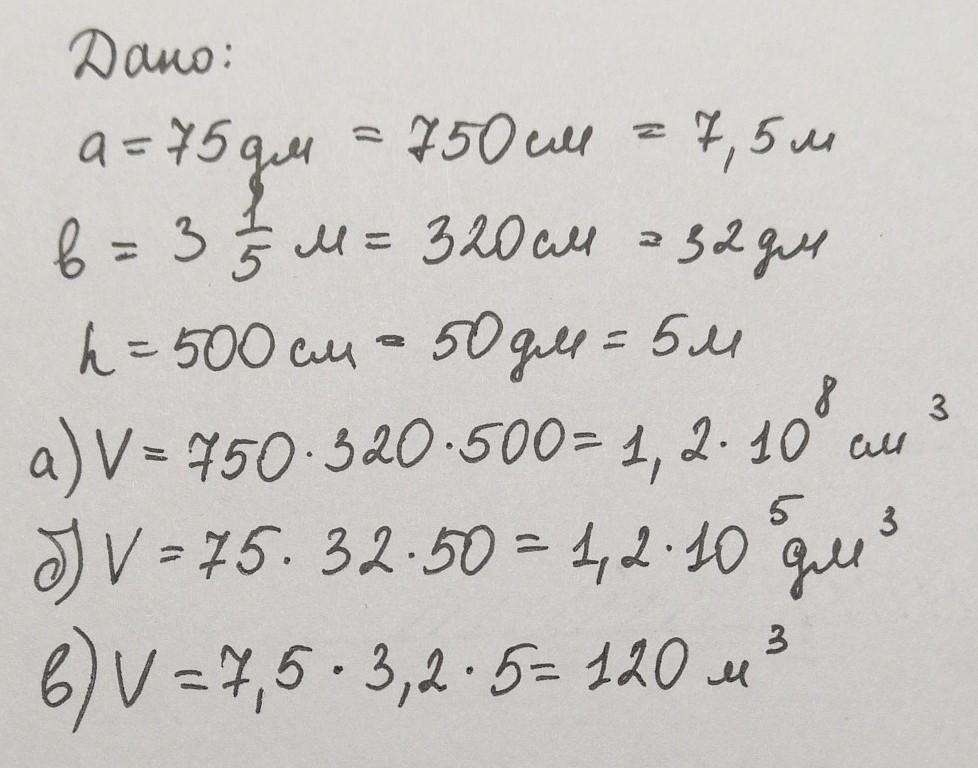 Дано:
a = 75 дм = 750 см = 7,5 м
в = 3 1/5 м = 320 см = 32 дм
h = 500 см = 50 дм = 5 м
а) V = 750 · 320 · 500 = 1,2 · 10⁸ см³
б) V = 75 · 32 · 50 = 1,2 · 10⁵ дм³
в) V = 7,5 · 3,2 · 5 = 120 м³